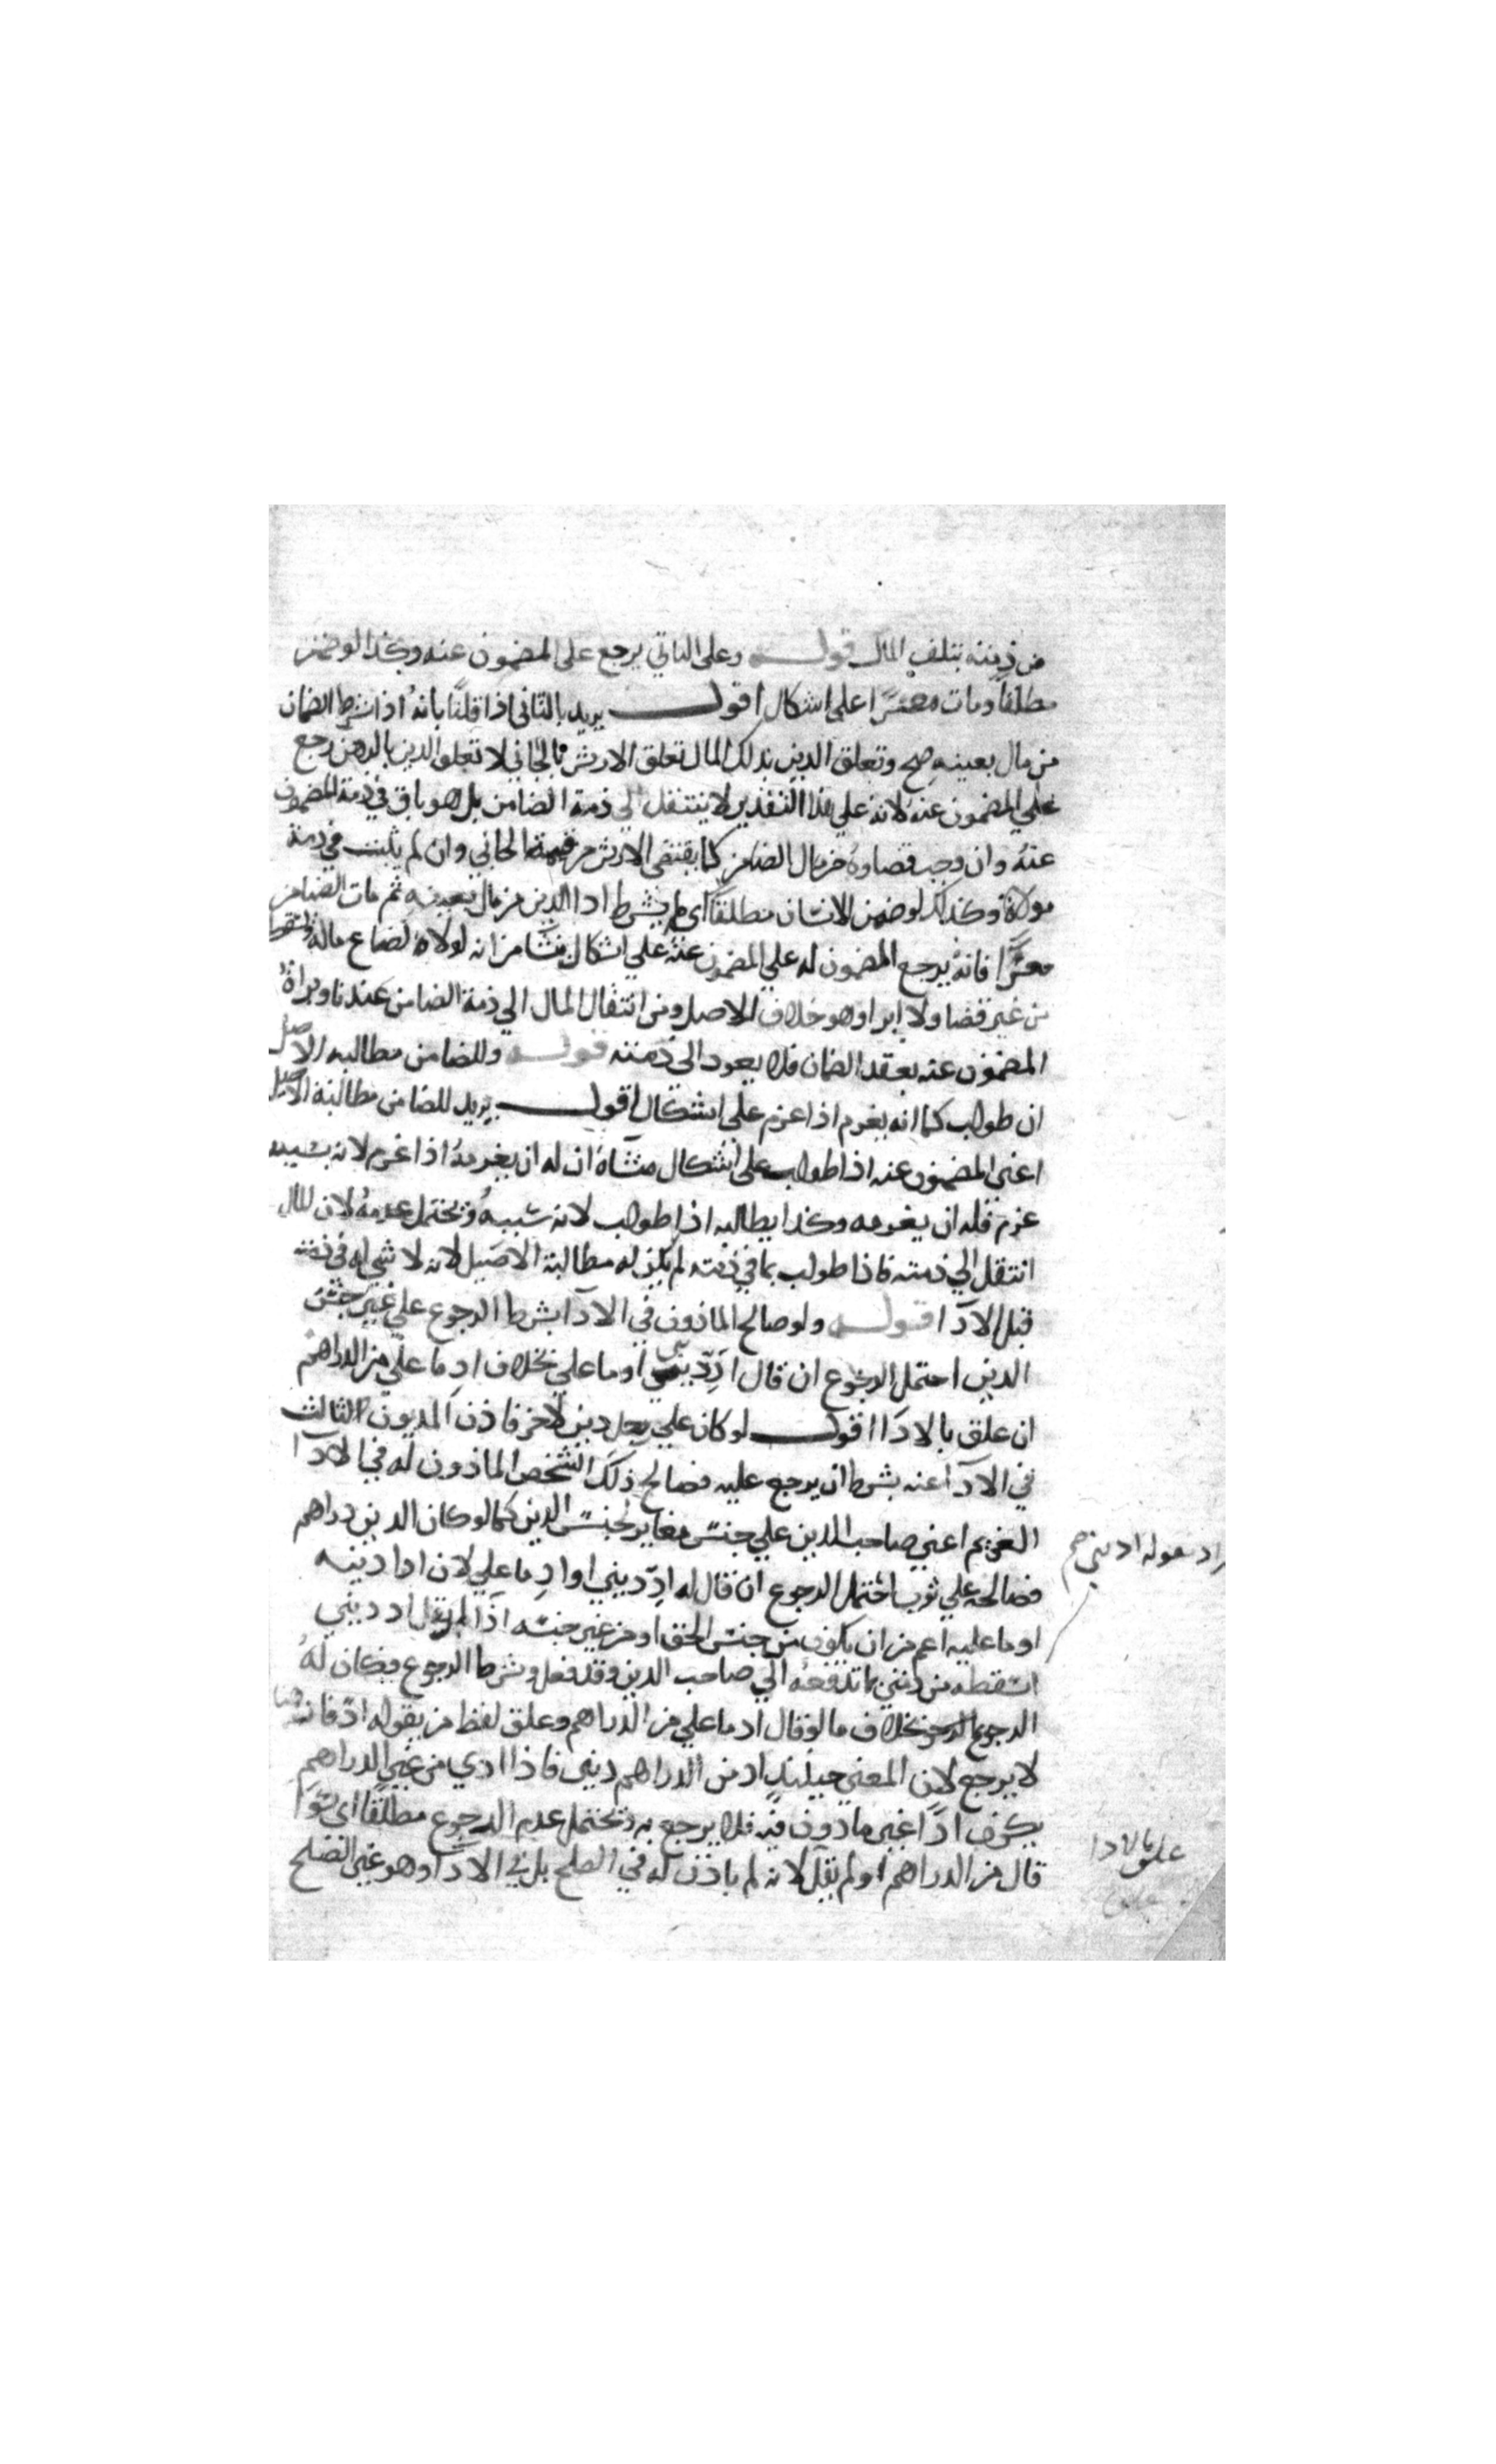 من ذمته بتلف المال قوله وعلى الثاني يرجع على المضمون عنه وكذا لو ضمن
مطلقا ومات معسرا على اشكال اقول يريد بالثاني اذا قلنا بانه اذا شرط الضمان
من مال بعينه صح وتعلق الدين بذلك المال تعلق الارش بالجاني لا تعلق الدين بالرهن رجع
على المضمون عنه لانه على هذا التقدير لا ينتقل الى ذمة الضامن بل هو باق في ذمة المضمون
عنه وان وجب قضاوه من مال الضامن كما يقتضى الارش من قيمة الجاني وان لم يثبت في ذمة
مولاه وكذلك لو ضمن الانسان مطلقا اي لم يشترط اداالدين من مال بعينه ثم مات الضامن
معسرا فانه يرجع المضمون له على المضمون عنه على اشكال ينشا من انه لولاه لضاع ماله
من غير قضا ولا ابرا وهو خلاف الاصل ومن انتقال المال الي ذمة الضامن عندنا وبراة
المضمون عنه بعقد الضمان فلا يعود الى ذمته قوله وللضامن مطالبه الاصيل
ان طولب كما انه يغرم اذا غرم على اشكال اقول يريد للضامن مطالبة الاصيل
اعني المضمون عنه اذا طولب على اشكال منشاه ان له ان يغرمه اذا غرم لانه بسببه
غرم فله ان يغرمه وكذا يطالبه اذا طولب لانه سببه ويحتمل عدمه لان المال
انتقل الي ذمته فاذا طولب بما في ذمته لم يكن له مطالبة الاصيل لانه لا شي له في ذمته
قبل الادآ قوله ولو صالح الماذون في الادآ بشرط الرجوع علي غير جنس
الدين احتمل الرجوع ان قال ادِّ ديني او ما علي بخلاف ادِ ما علي من الدراهم
ان علق بالادآ اقول لو كان علي رجل دين لاخر فاذن المديون لثالث
في الادآ عنه بشرط ان يرجع عليه فصالح ذلك الشخص الماذون له في الادآ
الغريم اعني صاحب الدين علي جنس مغاير لجنس الدين كما لو كان الدين دراهم
فصالحه علي ثوب احتمل الرجوع ان قال له ادِّ ديني او ادِ ما علي لان ادا دينه
او ما عليه اعم من ان يكون من جنس الحق او من غير جنسه اذا لم يقل اد ديني
اسقطه من ذمتي بما تدفعه الي صاحب الدين وقد فعل وشرط الرجوع فكان له
الرجوع بخلاف ما لو قال اد ما علي من الدراهم وعلق لفظ من بقوله ادّ فانه هنا
لا يرجع لان المعني حينئذ اد من الدراهم ديني فاذا ادي من غير الدراهم
يكون اداً غير ماذون فيه فلا يرجع به ويحتمل عدم الرجوع مطلقا اي سوا
قال من الدراهم او لم يقل لانه لم ياذن له في الصلح بل في الادآ وهو غير الصلح
علق بالادا